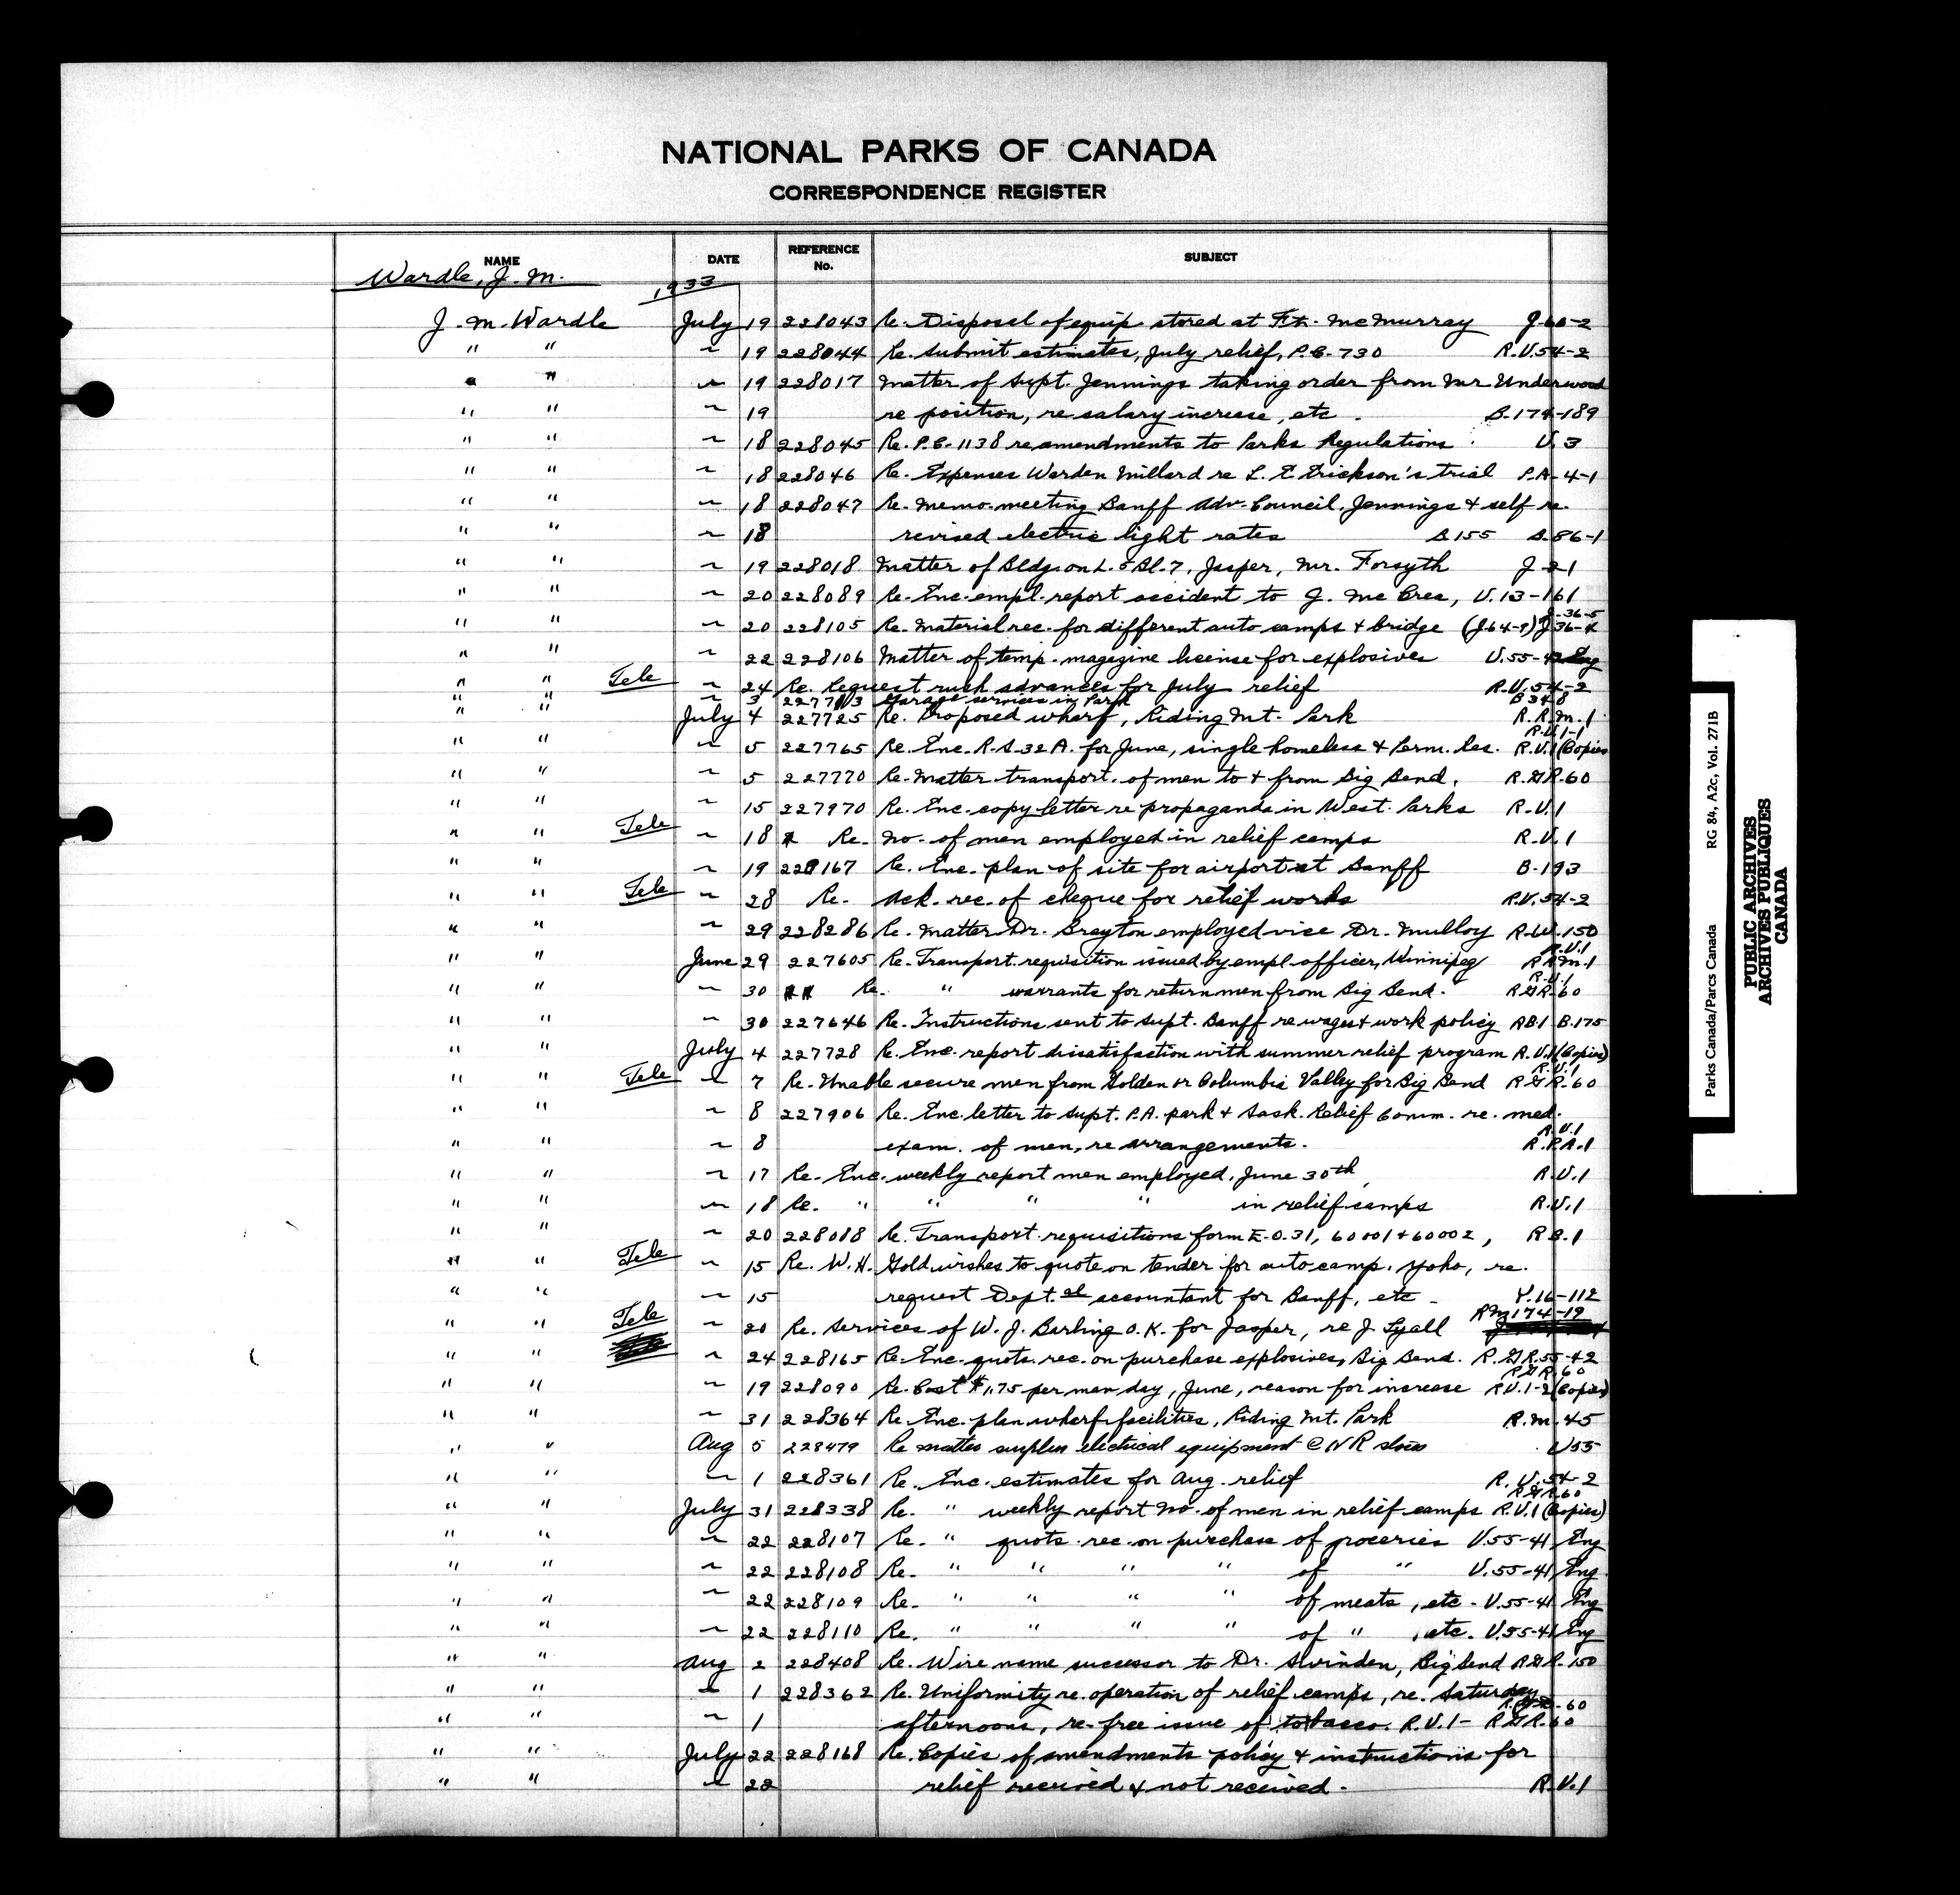 NATIONAL PARKS OF CANADA
CORRESPONDENCE REGISTER
NAME DATE REFERENCE No. SUBJECT
Wardle, J. M. 1933
J. M. Wardle July 19 228043 Re. Disposal of equip stored at Ft. McMurray J-60-2
" " ~ 19 228044 Re. Submit estimates, July relief, P.C. 730 R.V.54-2
" " ~ 19 228017 Matter of Supt. Jennings taking order from Mr Underwood
" " ~ 19 re position, re salary increase, etc. B.174-189
" " ~ 18 228045 Re. P.C. 1138 re amendments to Parks Regulations U.3
" " ~ 18 228046 Re. Expenses Warden Millard re L. E Erickson's trial P.A. 4-1
" " ~ 18 228047 Re. Memo. meeting Banff Adv. Council, Jennings & self re.
" " ~ 18 revised electric light rates B155 B.86-1
" " ~ 19 228018 Matter of Bldg. on L. 5 Bl. 7, Jasper, Mr. Forsyth J-21
" " ~ 20 228089 Re. Enc. empl. report accident to J. McCrea, U.13-161
" " ~ 20 228105 Re. Material rec. for different auto camps & bridge (J64-9) J-36-5 J36-4
" " ~ 22 228106 Matter of temp. magazine license for explosives U.55-42 Eng
" " Tele ~ 24 Re. Request rush advances for July relief R.V.54-2
" " ~ 3 227713 Garage services in Park B34-8
" " July 4 227725 Re. Proposed wharf, Riding Mt. Park R.R.M.1
" " ~ 5 227765 Re. Enc. R.S. 32 A. for June, single homeless & Perm. Res. R.U.1-1 R.U.1 (Copies
" " ~ 5 227770 Re. Matter transport. of men to & from Big Bend. R.GR.60
" " ~ 15 227970 Re. Enc. copy letter re propaganda in West. Parks R.U.1
" " Tele ~ 18 Re. No. of men employed in relief camps R.U.1
" " ~ 19 228167 Re. Enc. plan of site for airport at Banff B-193
" " Tele ~ 28 Re. Ack. rec. of cheque for relief works R.V.54-2
" " ~ 29 228286 Re. Matter Dr. Brayton employed vice Dr. Mulloy R.W.150
" " June 29 227605 Re. Transport. requisition issued by empl. officer, Winnipeg R.U.1 R.R.M.1
" " ~ 30 Re. " warrants for return men from Big Bend. R.U.1 R.GR.60
" " ~ 30 227646 Re. Instructions sent to Supt. Banff re wages & work policy RB1 B.175
" " July 4 227728 Re. Enc. report dissatisfaction with summer relief program R.U.1 (Copies)
" " Tele ~ 7 Re. Unable secure men from Golden or Columbia Valley for Big Bend R.U.1 R.GR.60
" " ~ 8 227906 Re. Enc. letter to Supt. P.A. park & Sask. Relief Comm. re. med.
" " ~ 8 exam. of men, re arrangements. R.U.1 R.PA.1
" " ~ 17 Re. Enc. weekly report men employed, June 30th, R.U.1
" " ~ 18 Re. " " " " in relief camps R.U.1
" " ~ 20 228088 Re. Transport. requisitions form E.O.31, 60001 & 60002, R B.1
" " Tele ~ 15 Re. W.H. Gold wishes to quote on tender for auto camp. Yoho, re.
" " ~ 15 request Dept.al accountant for Banff, etc. Y.16-112
" " Tele ~ 20 Re. Services of W. J. Barling O.K. for Jasper, re J. Lyall RM174-19
" " ~ 24 228165 Re. Enc. quots. rec. on purchase explosives, Big Bend. R.GR.55-42
" " ~ 19 228090 Re. Cost $1.75 per man day, June, reason for increase R.GR.60 R.U.1-2 (Copies)
" " ~ 31 228364 Re. Enc. plan wharf facilities, Riding Mt. Park R.M.45
" " Aug 5 228479 Re matter surplus electrical equipment C N R stores U55
" " ~ 1 228361 Re. Enc. estimates for Aug. relief R.V.54-2
" " July 31 228338 Re. " weekly report No. of men in relief camps R.GR.60 R.U.1 (Copies)
" " ~ 22 228107 Re. " quots. rec. on purchase of groceries U.55-41 Eng
" " ~ 22 228108 Re. " " " " of " U.55-41 Eng.
" " ~ 22 228109 Re. " " " " of meats, etc. U.55-41 Eng
" " ~ 22 228110 Re. " " " " of " , etc. U.55-41 Eng
" " Aug 2 228408 Re. Wire name successor to Dr. Swinden, Big Bend R.GR.150
" " ~ 1 228362 Re. Uniformity re. operation of relief camps, re. Saturday
" " ~ 1 afternoons, re. free issue of tobacco. R.U.1- R.GR.60
" " July 22 228168 Re. Copies of amendments policy & instructions for
" " ~ 22 relief received & not received. R.U.1
Parks Canada/Parcs Canada RG 84, A2c, Vol. 271B
PUBLIC ARCHIVES
ARCHIVES PUBLIQUES
CANADA